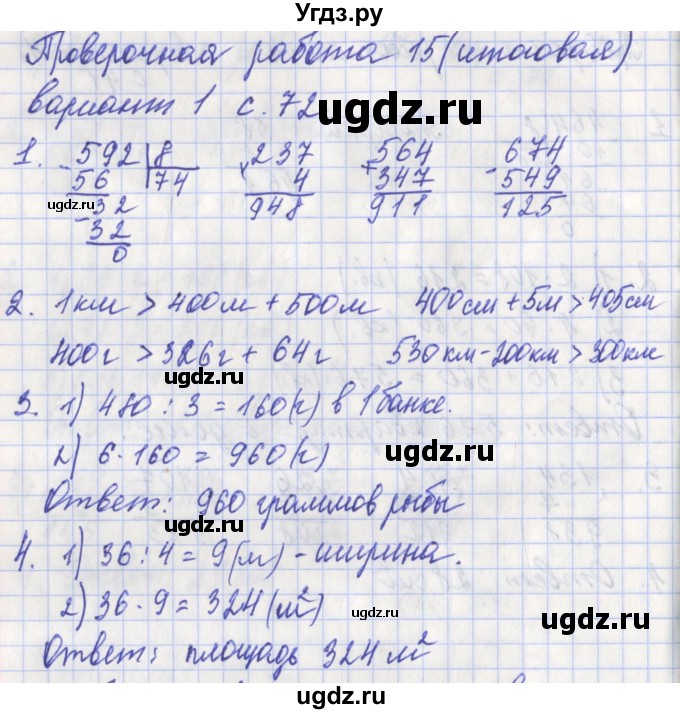 Угдз.ру
Проверочная работа 15 (итоговая)
вариант 1 с. 72
ugdz.ru
1. - 592 | 8 × 237 + 564 - 674
56 74 4 347 549
ugdz.ru - 32 948 911 125
32
0
ugdz.ru
2. 1 км > 400 м + 500 м 400 см + 5 м > 405 см
400 г > 326 г + 64 г 530 км - 200 км > 300 км
ugdz.ru
3. 1) 480 : 3 = 160 (г) в 1 банке.
ugdz.ru
2) 6 · 160 = 960 (г)
Ответ: 960 граммов рыбы
ugdz.ru
4. 1) 36 : 4 = 9 (м) - ширина.
2) 36 · 9 = 324 (м²)
ugdz.ru
Ответ: площадь 324 м²
ugdz.ru
ugdz.ru